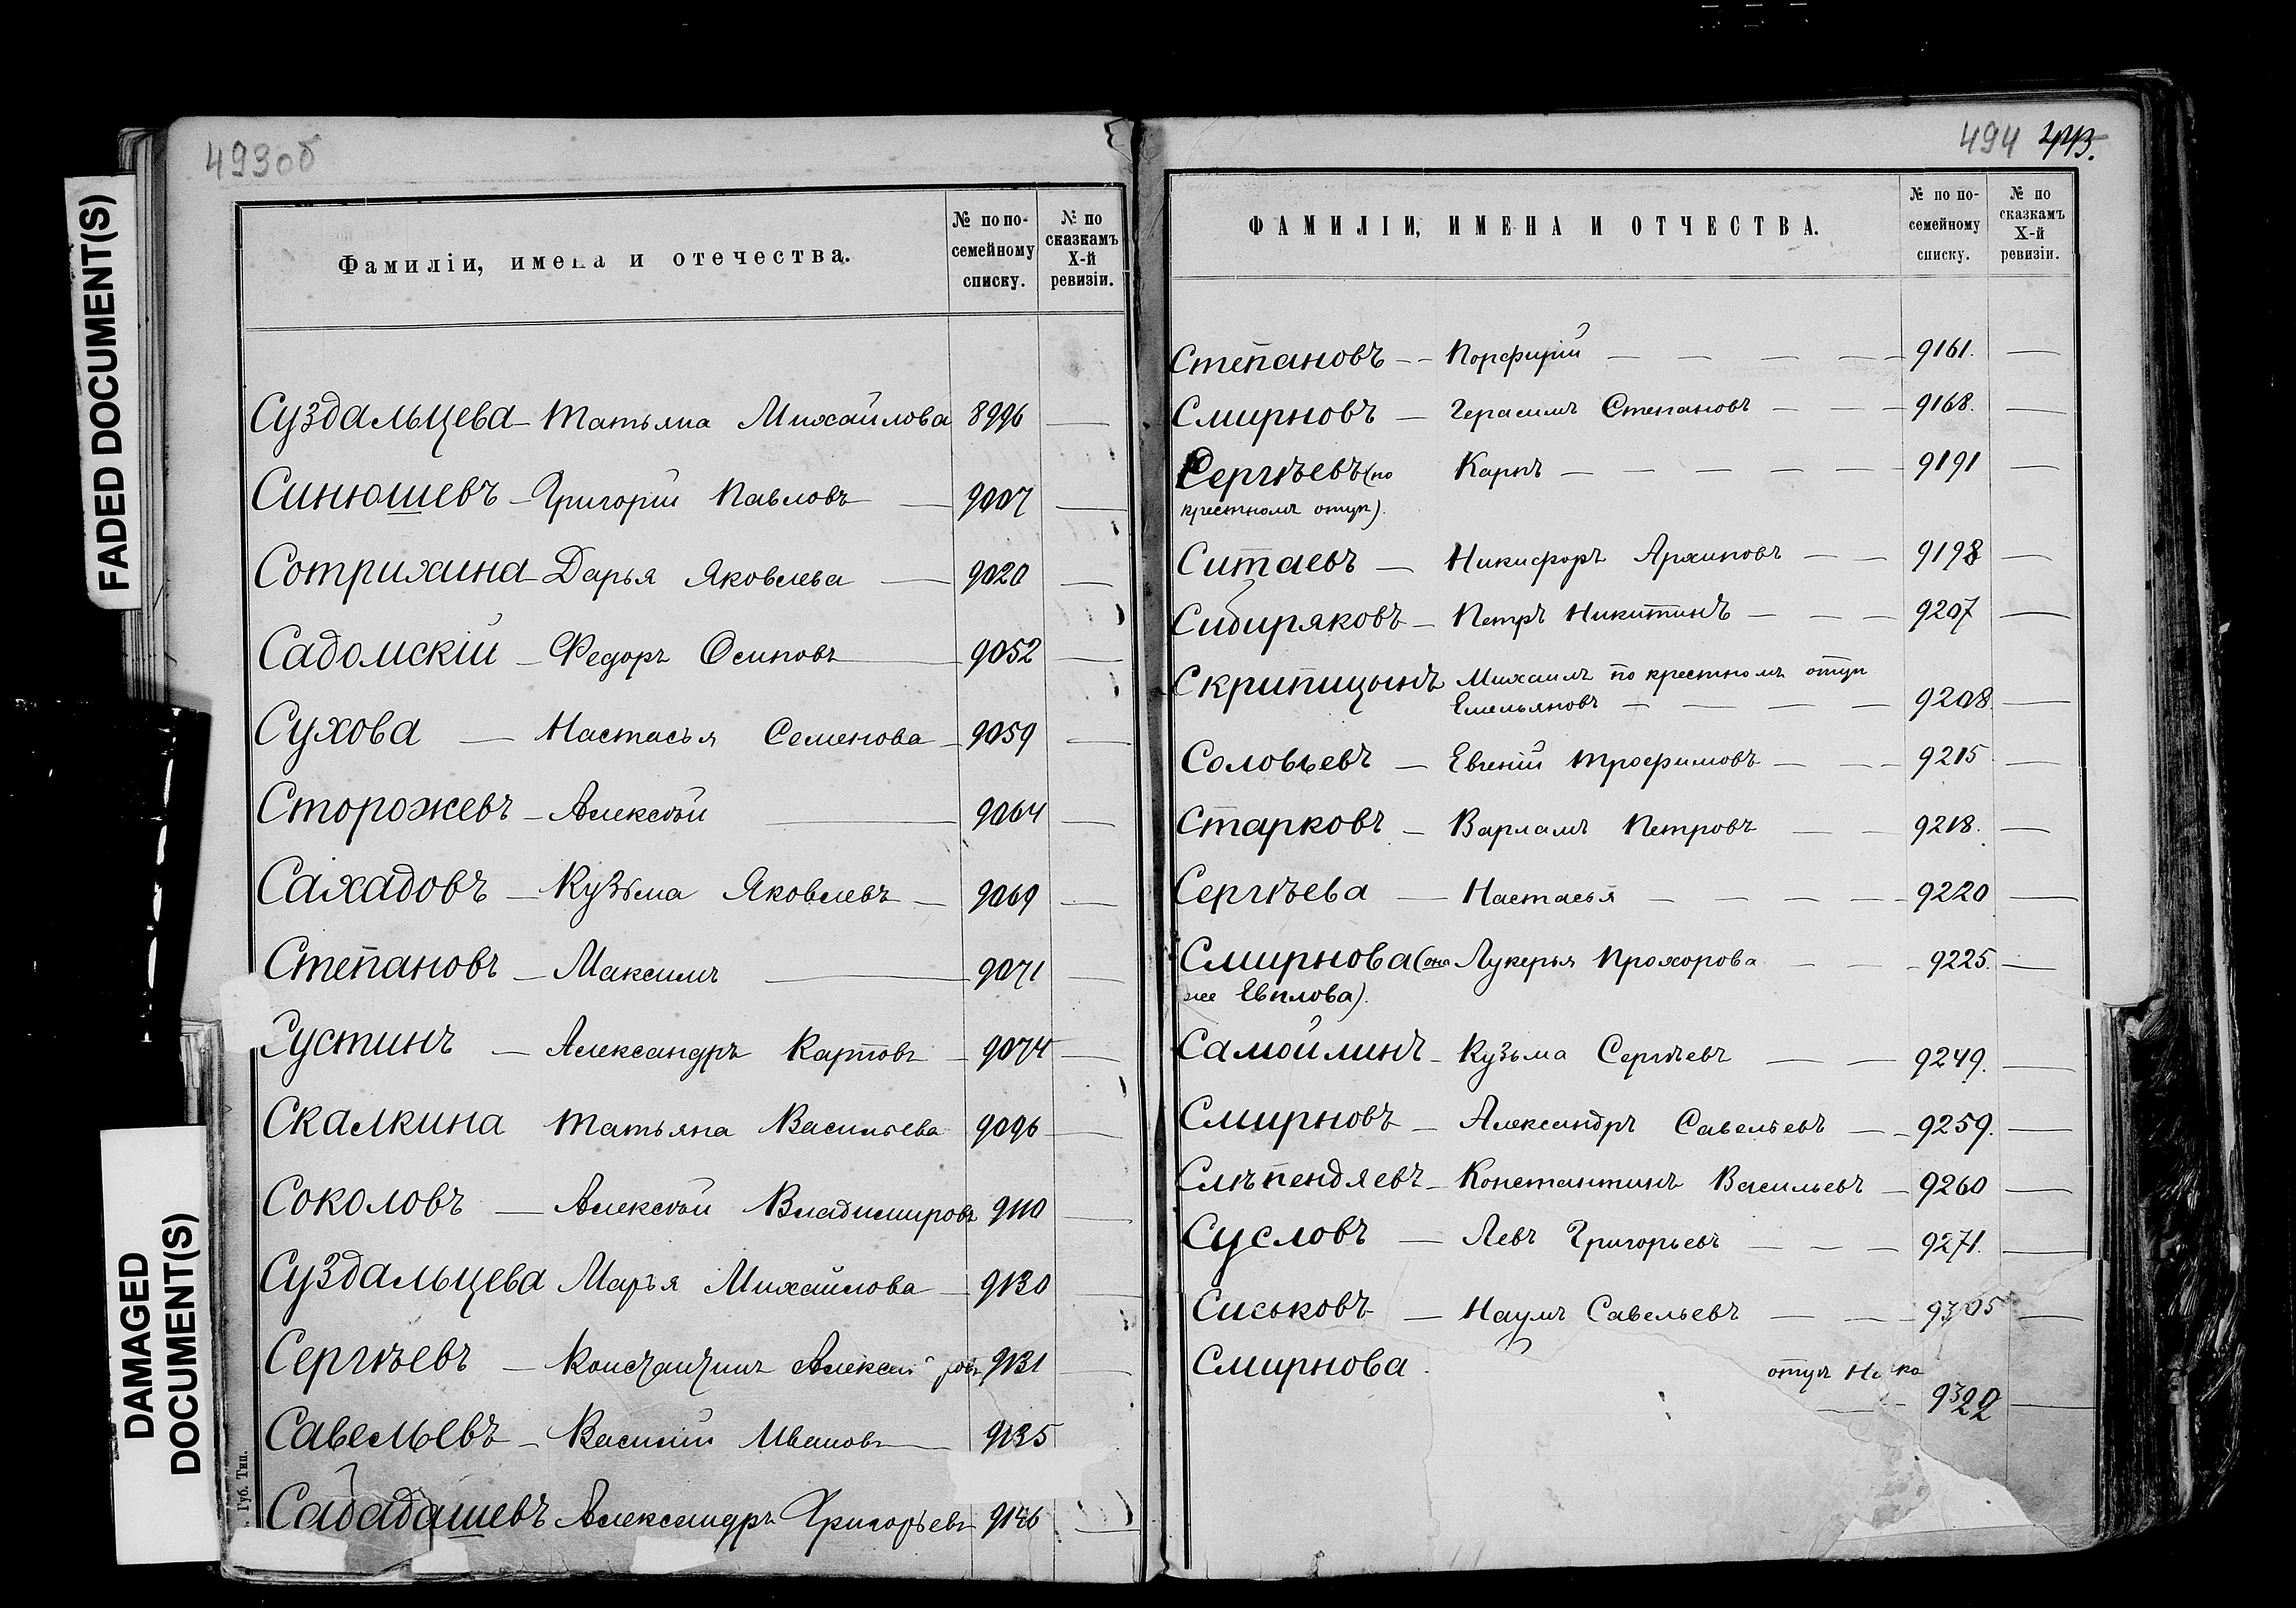 FADED DOCUMENT(S)
DAMAGED
DOCUMENT(S)
493об
Фамиліи, имена и отечества.
№ по по-
семейному
списку.
№ по
сказкамъ
X-й
ревизіи.
Суздальцева — Татьяна Михайлова 8996 —
Синюшевъ — Григорій Павловъ — 9007 —
Сотрихина — Дарья Яковлева — 9020 —
Садомскій — Федоръ Осиповъ — 9052 —
Сухова — Настасья Семенова — 9059 —
Сторожевъ — Алексѣй — 9064 —
Сахадовъ — Кузьма Яковлевъ — 9069 —
Степановъ — Максимъ — 9071 —
Сустинъ — Александръ Карповъ — 9074 —
Скалкина Татьяна Васильева 9096 —
Соколовъ — Алексѣй Владимировъ 9110 —
Суздальцева Марья Михайлова — 9130 —
Сергѣевъ — Константинъ 9131 —
Савельевъ — Василій Ивановъ — 9135
Александръ Григорьевъ 9146 —
Губ. Тип.
494
ФАМИЛІИ, ИМЕНА И ОТЧЕСТВА.
№ по по-
семейному
списку.
№ по
сказкамъ
X-й
ревизіи.
Степановъ — — Порфирій — — — — — 9161. —
Смирновъ — Герасимъ Степановъ — — — 9168. —
Сергѣевъ (по Карпъ — — — — — — 9191 —
крестномъ отцу).
Ситаевъ — Никифоръ Архиповъ — — 9198 —
Сибиряковъ — Петръ Никитинъ — — — 9207 —
Скрипицынъ Михаилъ по крестномъ отцу
Емельяновъ — — — — 9208. —
Соловьевъ — Евгеній Трофимовъ — — — 9215 —
Старковъ — Варламъ Петровъ — — 9218. —
Сергѣева — Настасья — — — — — 9220 —
Смирнова (она Лукерья Прохорова — — — 9225. —
же Евплова).
Самойлинъ — Кузьма Сергѣевъ — — 9249. —
Смирновъ — Александръ Савельевъ — — 9259. —
Слѣпендяевъ — Константинъ Васильевъ — 9260 —
Сусловъ — Левъ Григорьевъ — — — 9271. —
Сиськовъ — Наумъ Савельевъ — — — 9305 —
Смирнова
отцу
9322 —